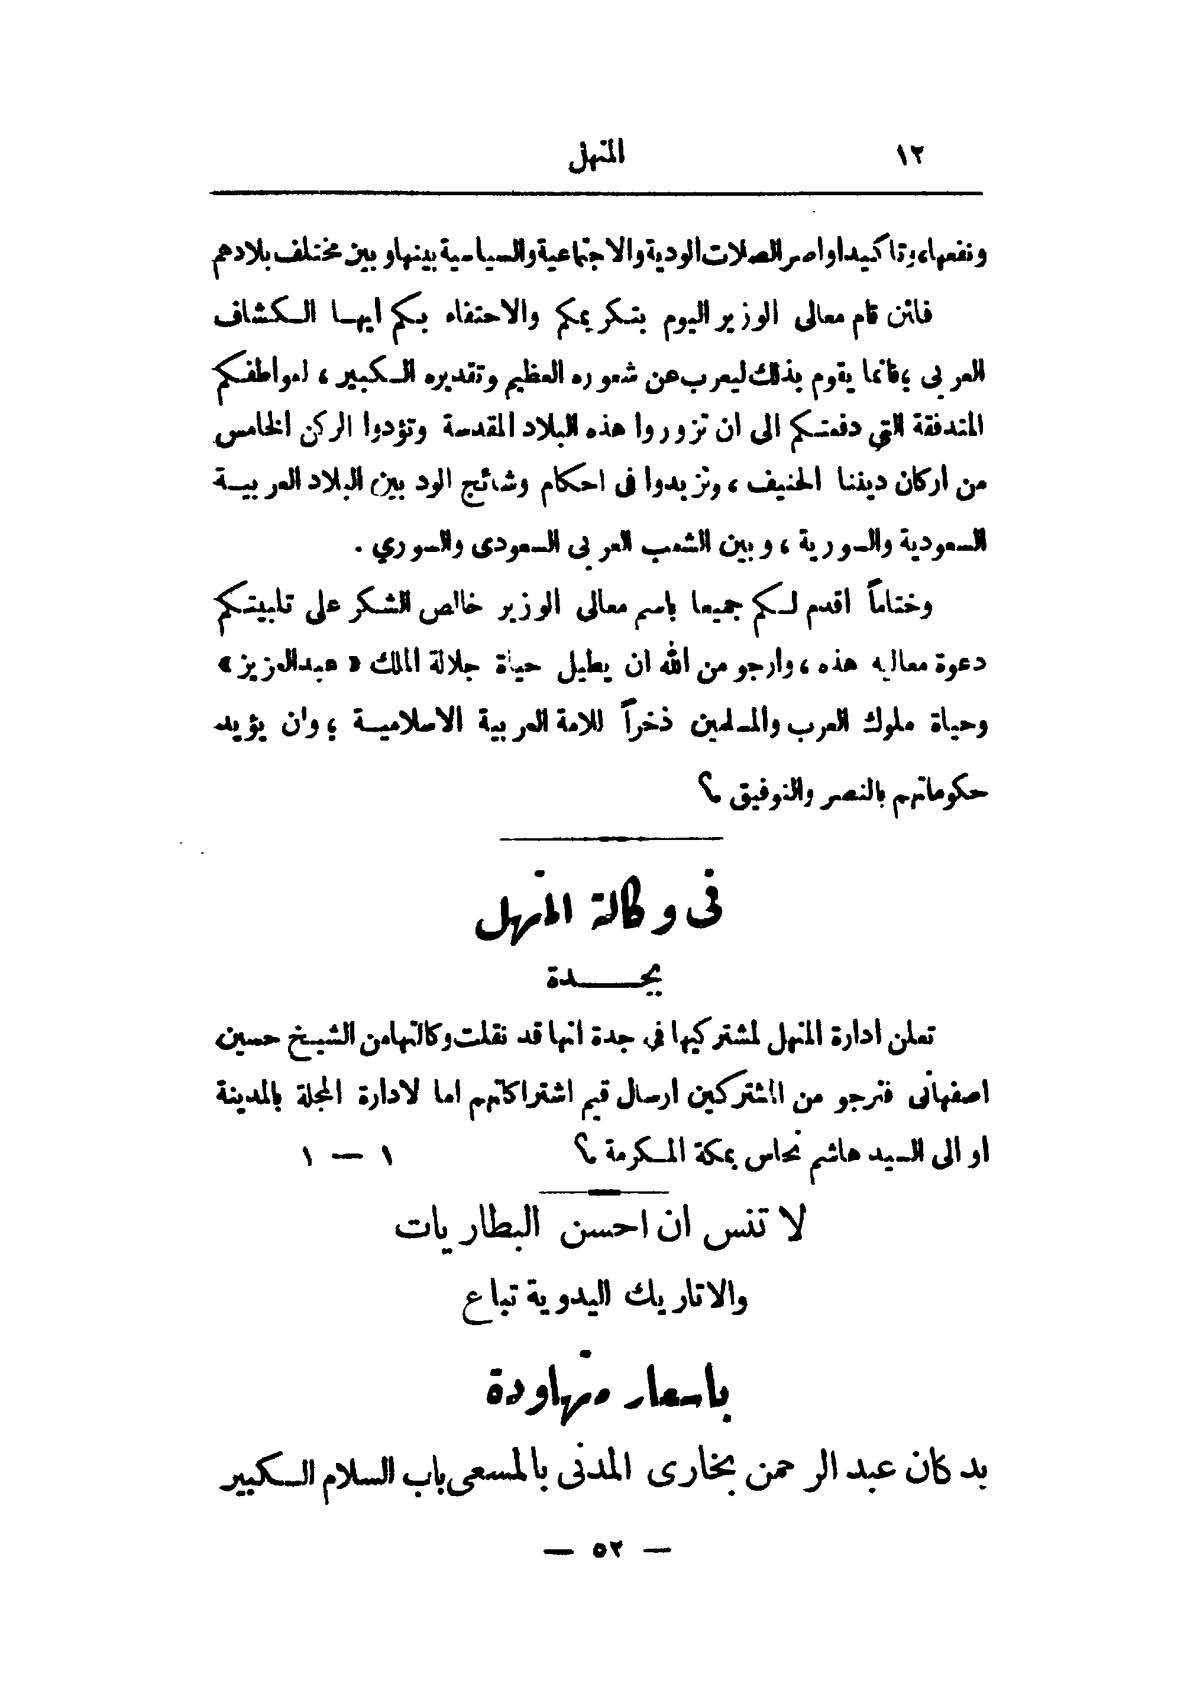 ١٢ المنهل
ونفعها، وتاكيد اواصر الصلات الودية والاجتماعية والسياسية بينها وبين مختلف بلادهم
فائن قام معالى الوزير اليوم بتكريمكم والاحتفاء بكم ايها الكشاف
العربى ؛ فانما يقوم بذلك ليعرب عن شعوره العظيم وتقديره الكبير ، لعواطفكم
المتدفقة التي دفعتكم الى ان تزوروا هذه البلاد المقدسة وتؤدوا الركن الخامس
من اركان ديننا الحنيف ، وتزيدوا فى احكام وشائج الود بين البلاد العربية
السعودية والسورية ، وبين الشعب العربى السعودى والسوري .
وختاماً اقدم لكم جميعا باسم معالى الوزير خالص الشكر على تلبيتكم
دعوة معاليه هذه ، وارجو من الله ان يطيل حياة جلالة الملك « عبدالعزيز »
وحياة ملوك العرب والمسلمين ذخراً للامة العربية الاسلامية ؛ وان يؤيد
حكوماتهم بالنصر والتوفيق ؟
فى وكالة المنهل
بجدة
تعلن ادارة المنهل لمشتركيها فى جدة انها قد نقلت وكالتها من الشيخ حسين
اصفهانى فنرجو من المشتركين ارسال قيم اشتراكاتهم اما لادارة المجلة بالمدينة
او الى السيد هاشم نحاس بمكة المكرمة ؟ ١ — ١
لا تنس ان احسن البطاريات
والاتاريك اليدوية تباع
باسعار متهاودة
بدكان عبد الرحمن بخارى المدنى بالمسعى باب السلام الكبير
— ٥٢ —